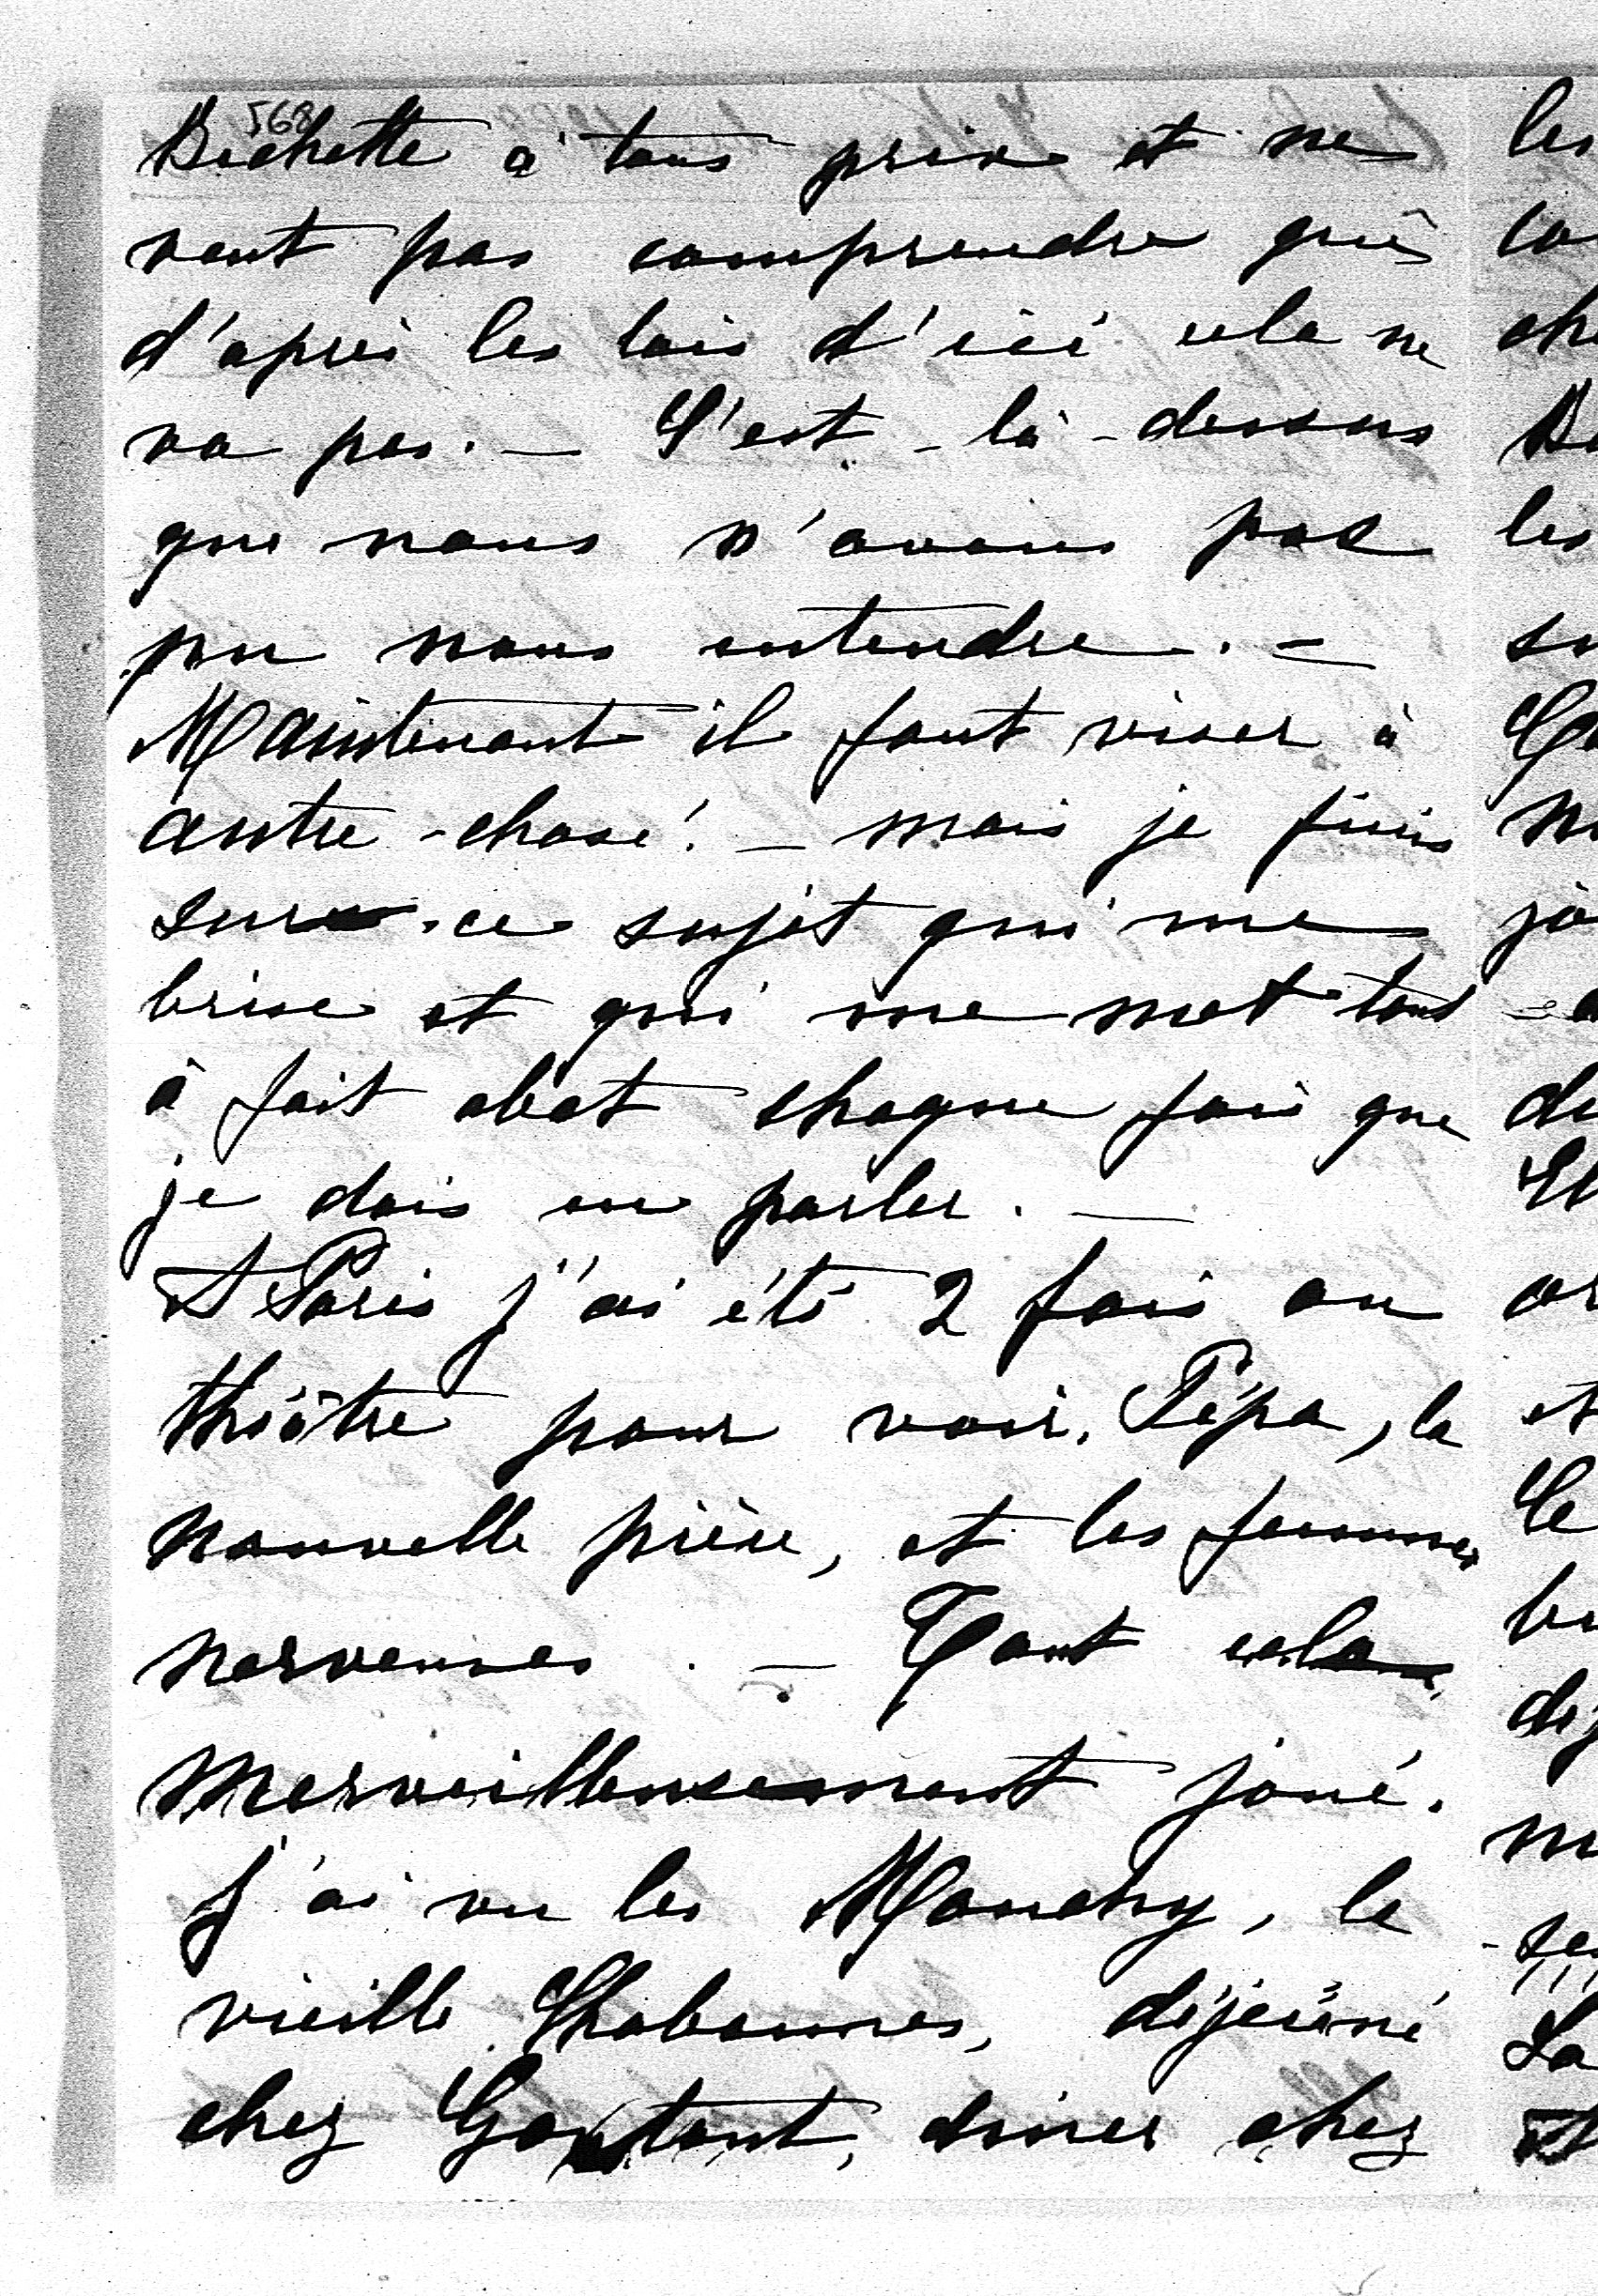 568
Bichette à tous prix et ne
veut pas comprendre que
d'après les lois d'ici cela ne
va pas. — C'est - là - dessus
que nous n'avons pas
pu nous entendre. —
Maintenant il faut viser à
autre - chose! — mais je finis
sur ce sujet qui me
brise et qui me met tout
à fait abat chaque fois que
je dois en parler. —
A Paris j'ai été 2 fois au
théâtre pour voir, Pépa, la
nouvelle pièce, et les femmes
nerveuses. — Tout cela
merveilleusement joué.
J'ai vu les Mouchy, le
vieille Chabannes, déjeuné
chez Gontaut, diner chez